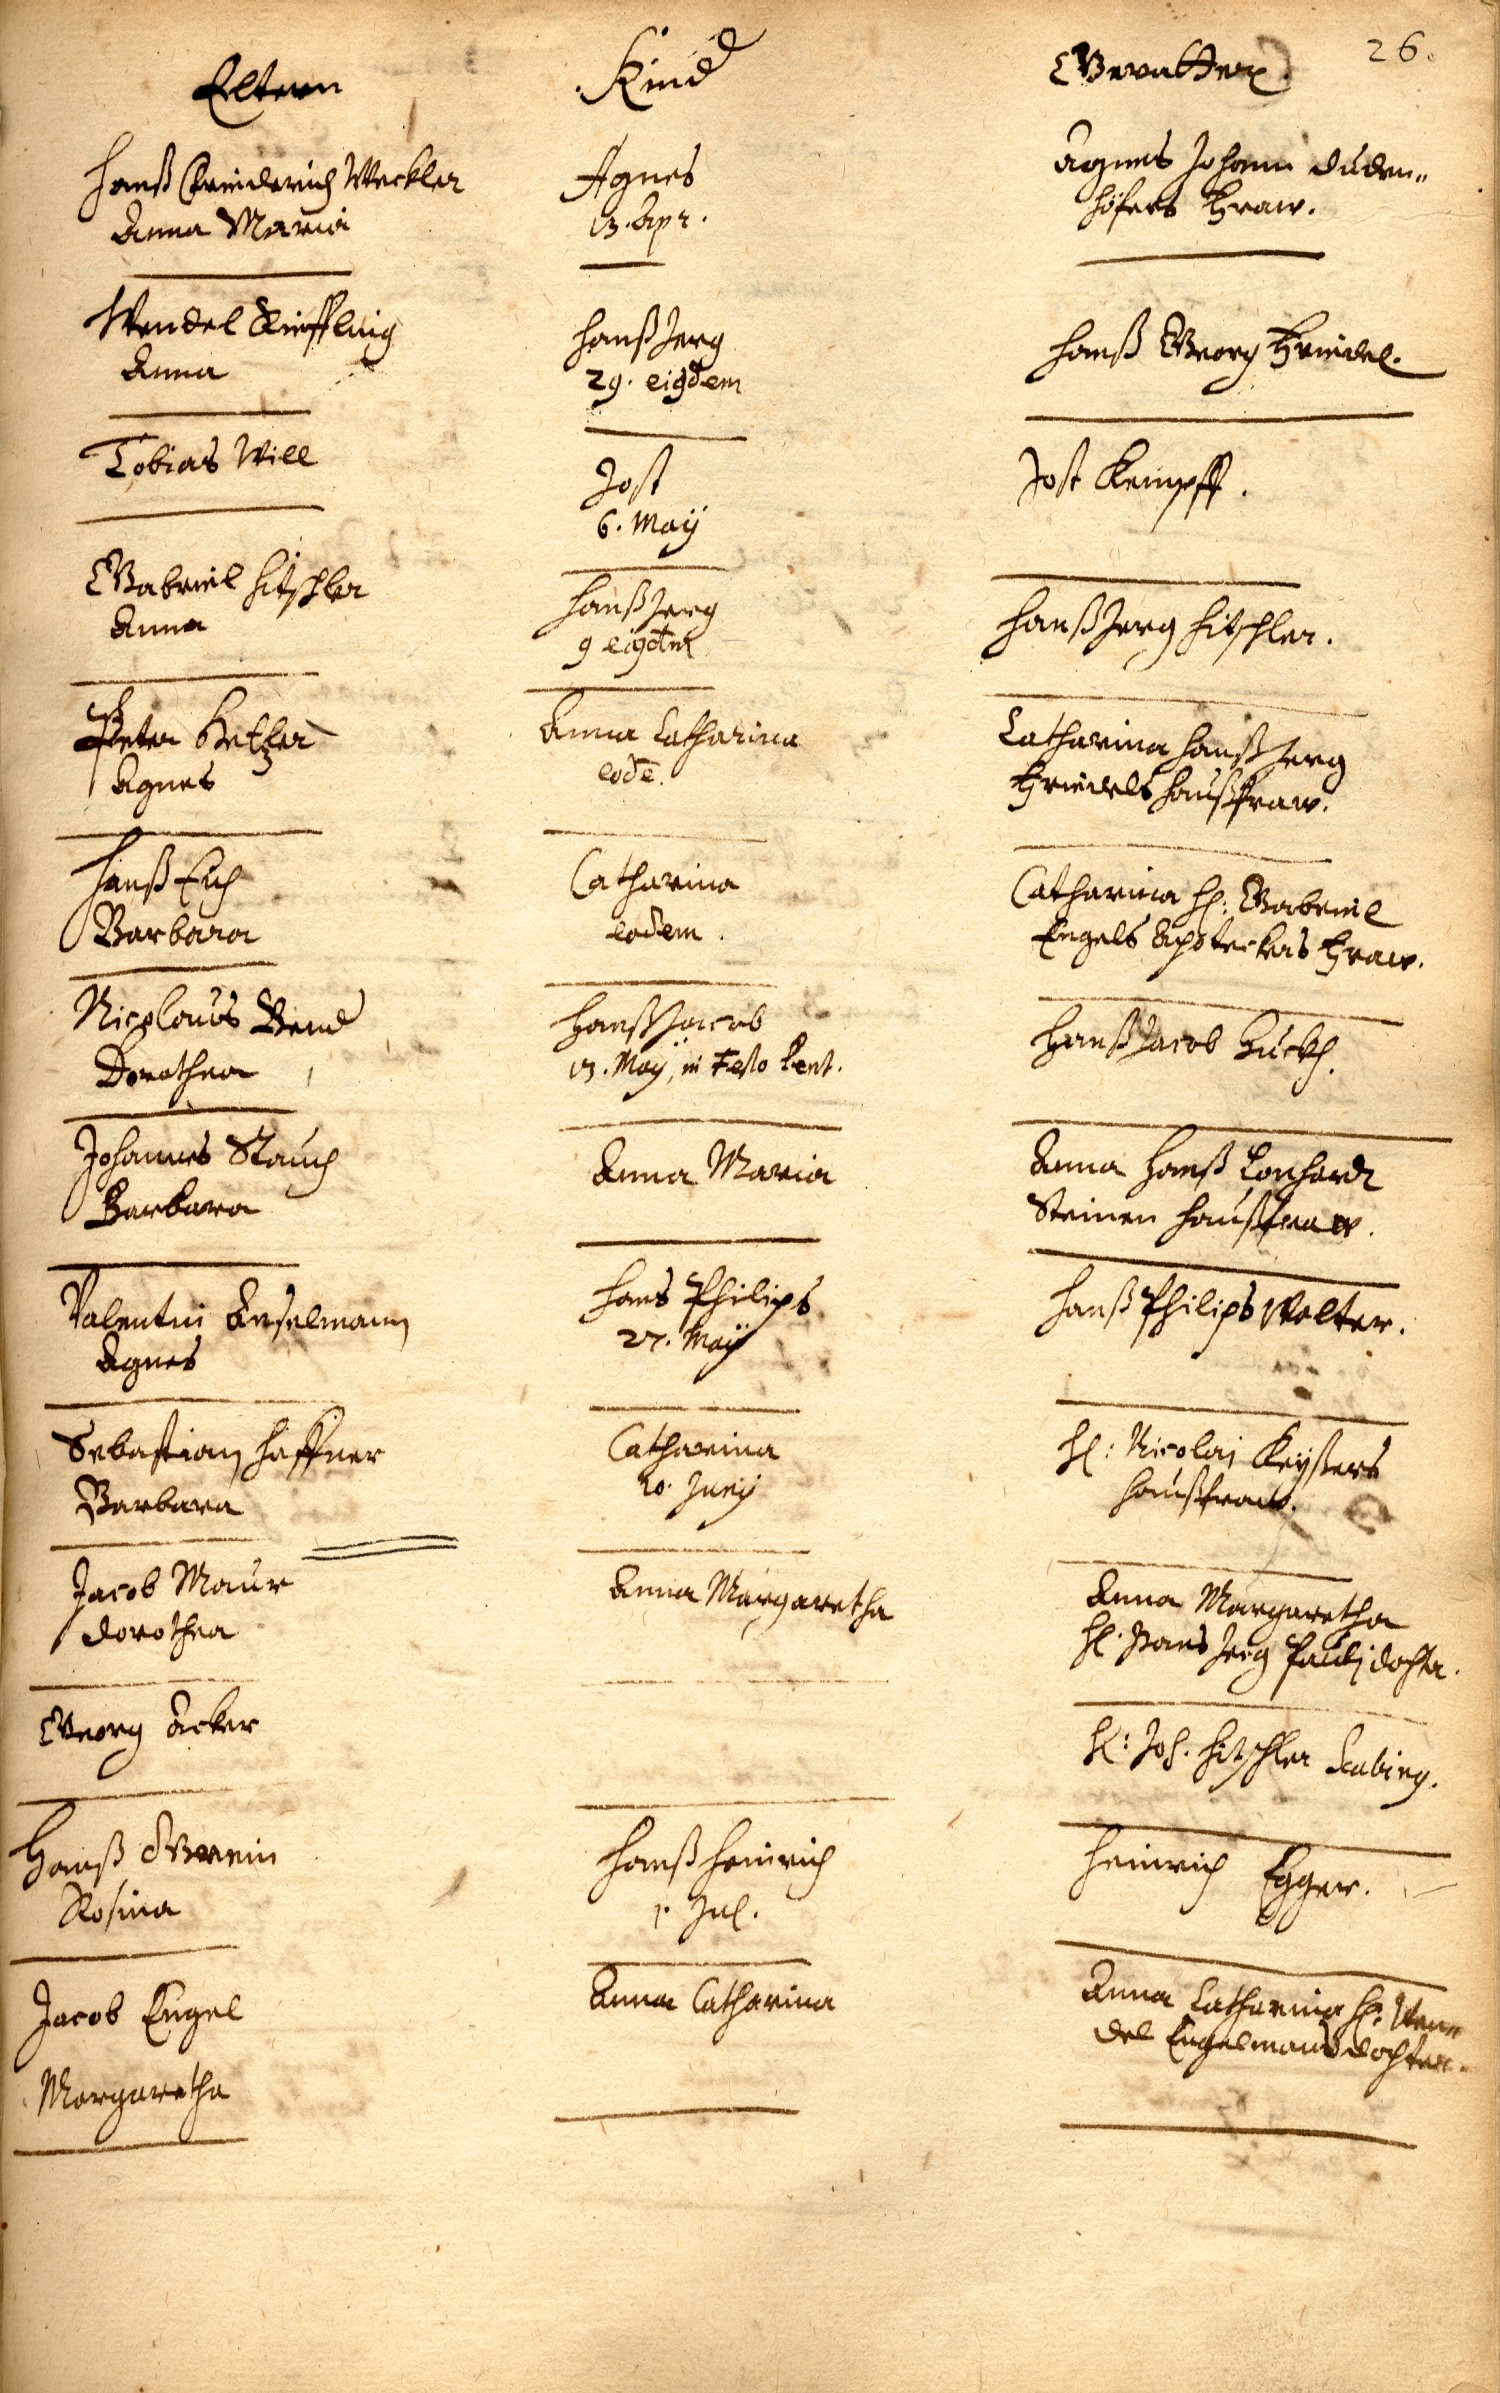 26.
Eltern
Kind
Gevatter
Hanß Friederich Weckler
Anna Maria
Agnes
13. Apr.
Agnes Johann Duden„
höfers Fraw.
Wendel
Anna
Hanß Jerg
29. eiqdem
Hanß Georg Friedel.
Tobias Will
Jost
6. Maÿ
Jost Kempff.
Gabriel Hitschler
Anna
Hanß Jerg
9 eiqdem
Hanß Jerg Hitschler.
Peter Hetzer
Agnes
Anna Catharina
eodē.
Catharina Hanß Jerg
Friedels Haußfraw.
Hanß Eich
Barbara
Catharina
eodem.
Catharina H: Gabriel
Engels Apoteckers Fraw.
Nicolaus Bend
Dorothea
Hanß Jacob
13. Maÿ, in Festo Pent.
Hanß Jacob
Johannes Stauch
Barbara
Anna Maria
Anna Hanß Lenhardt
Steinen Haußfraw.
Valentin Anselmann
Agnes
Hans Philips
27. Maÿ
Hanß Philips Wolter.
Sebastian Haffner
Barbara
Catharina
20. Junÿ
H: Nicolai Keyßers
Haußfraw.
Jacob Maur
Dorothea
Anna Margaretha
Anna Margaretha
H. Hans Jerg Pauli dochter.
Georg Acker
H: Joh. Hitschler Scabing.
Hanß Gwein
Rosina
Hanß Heinrich
1. Jul.
Heinrich Egger.
Jacob Engel
Margaretha
Anna Catharina
Anna Catharina H: Wen„
del Engelmans dochter.